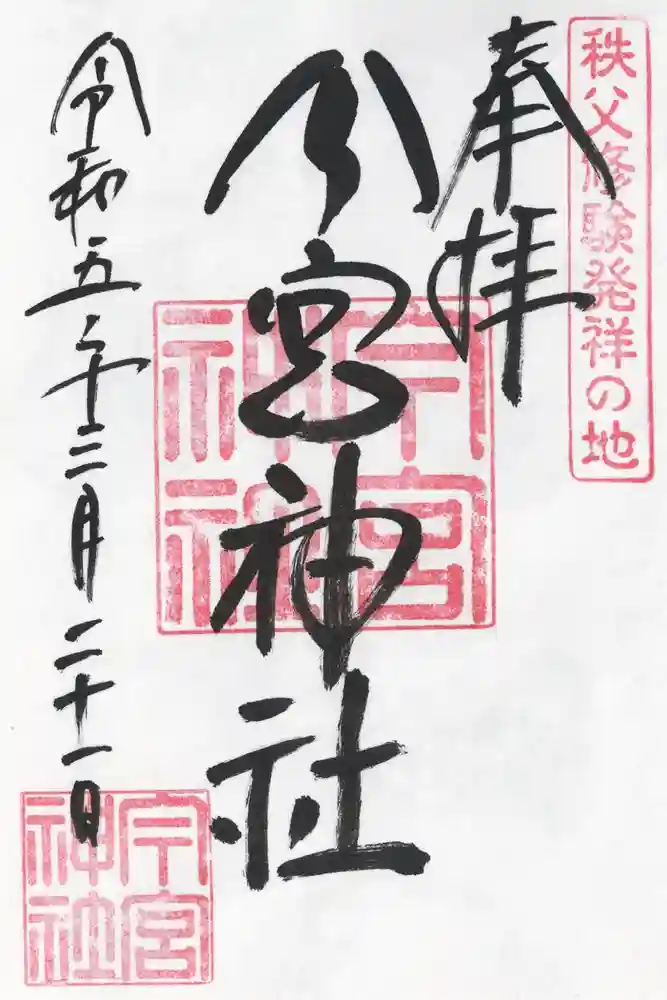 秩父修験発祥の地
奉拝
今宮神社
今宮神社
令和五年三月二十一日
今宮神社